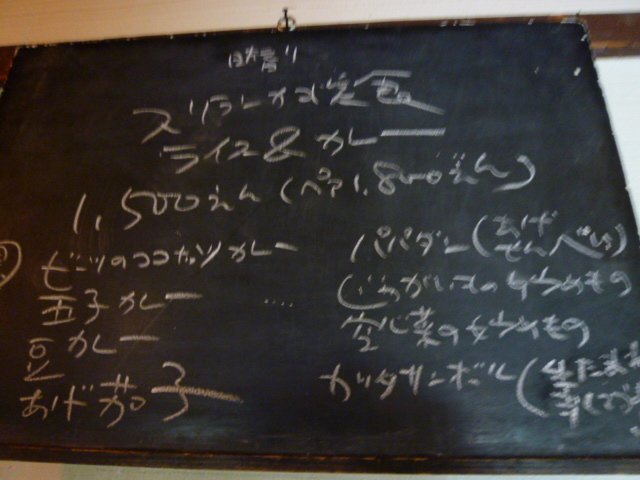 スリランカ定食
ライス&カレー
1,500えん(ペア1,800えん)
ビーツのココナッツカレー
玉子カレー
豆カレー
あげ茄子
パパダン(あげせんべい)
じゃがいものいためもの
空心菜のいためもの
カリタサンボル(